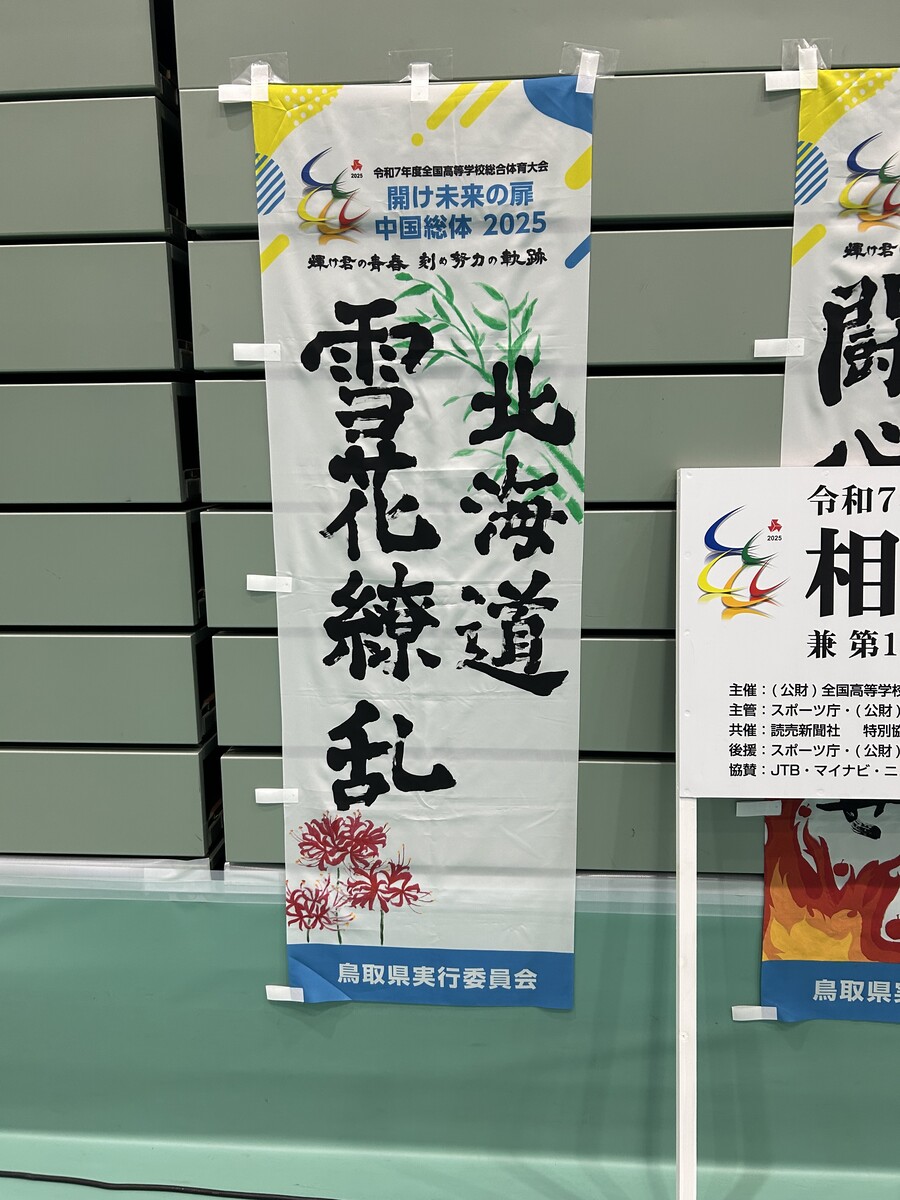 2025
令和7年度全国高等学校総合体育大会
開け未来の扉
中国総体 2025
輝け君の青春 刻め努力の軌跡
北海道
雪花繚乱
鳥取県実行委員会
輝け君
闘心
鳥取県実
2025
令和7
相
兼 第1
主催：(公財) 全国高等学校
主管：スポーツ庁・(公財)
共催：読売新聞社 特別協
後援：スポーツ庁・(公財)
協賛：JTB・マイナビ・ニ